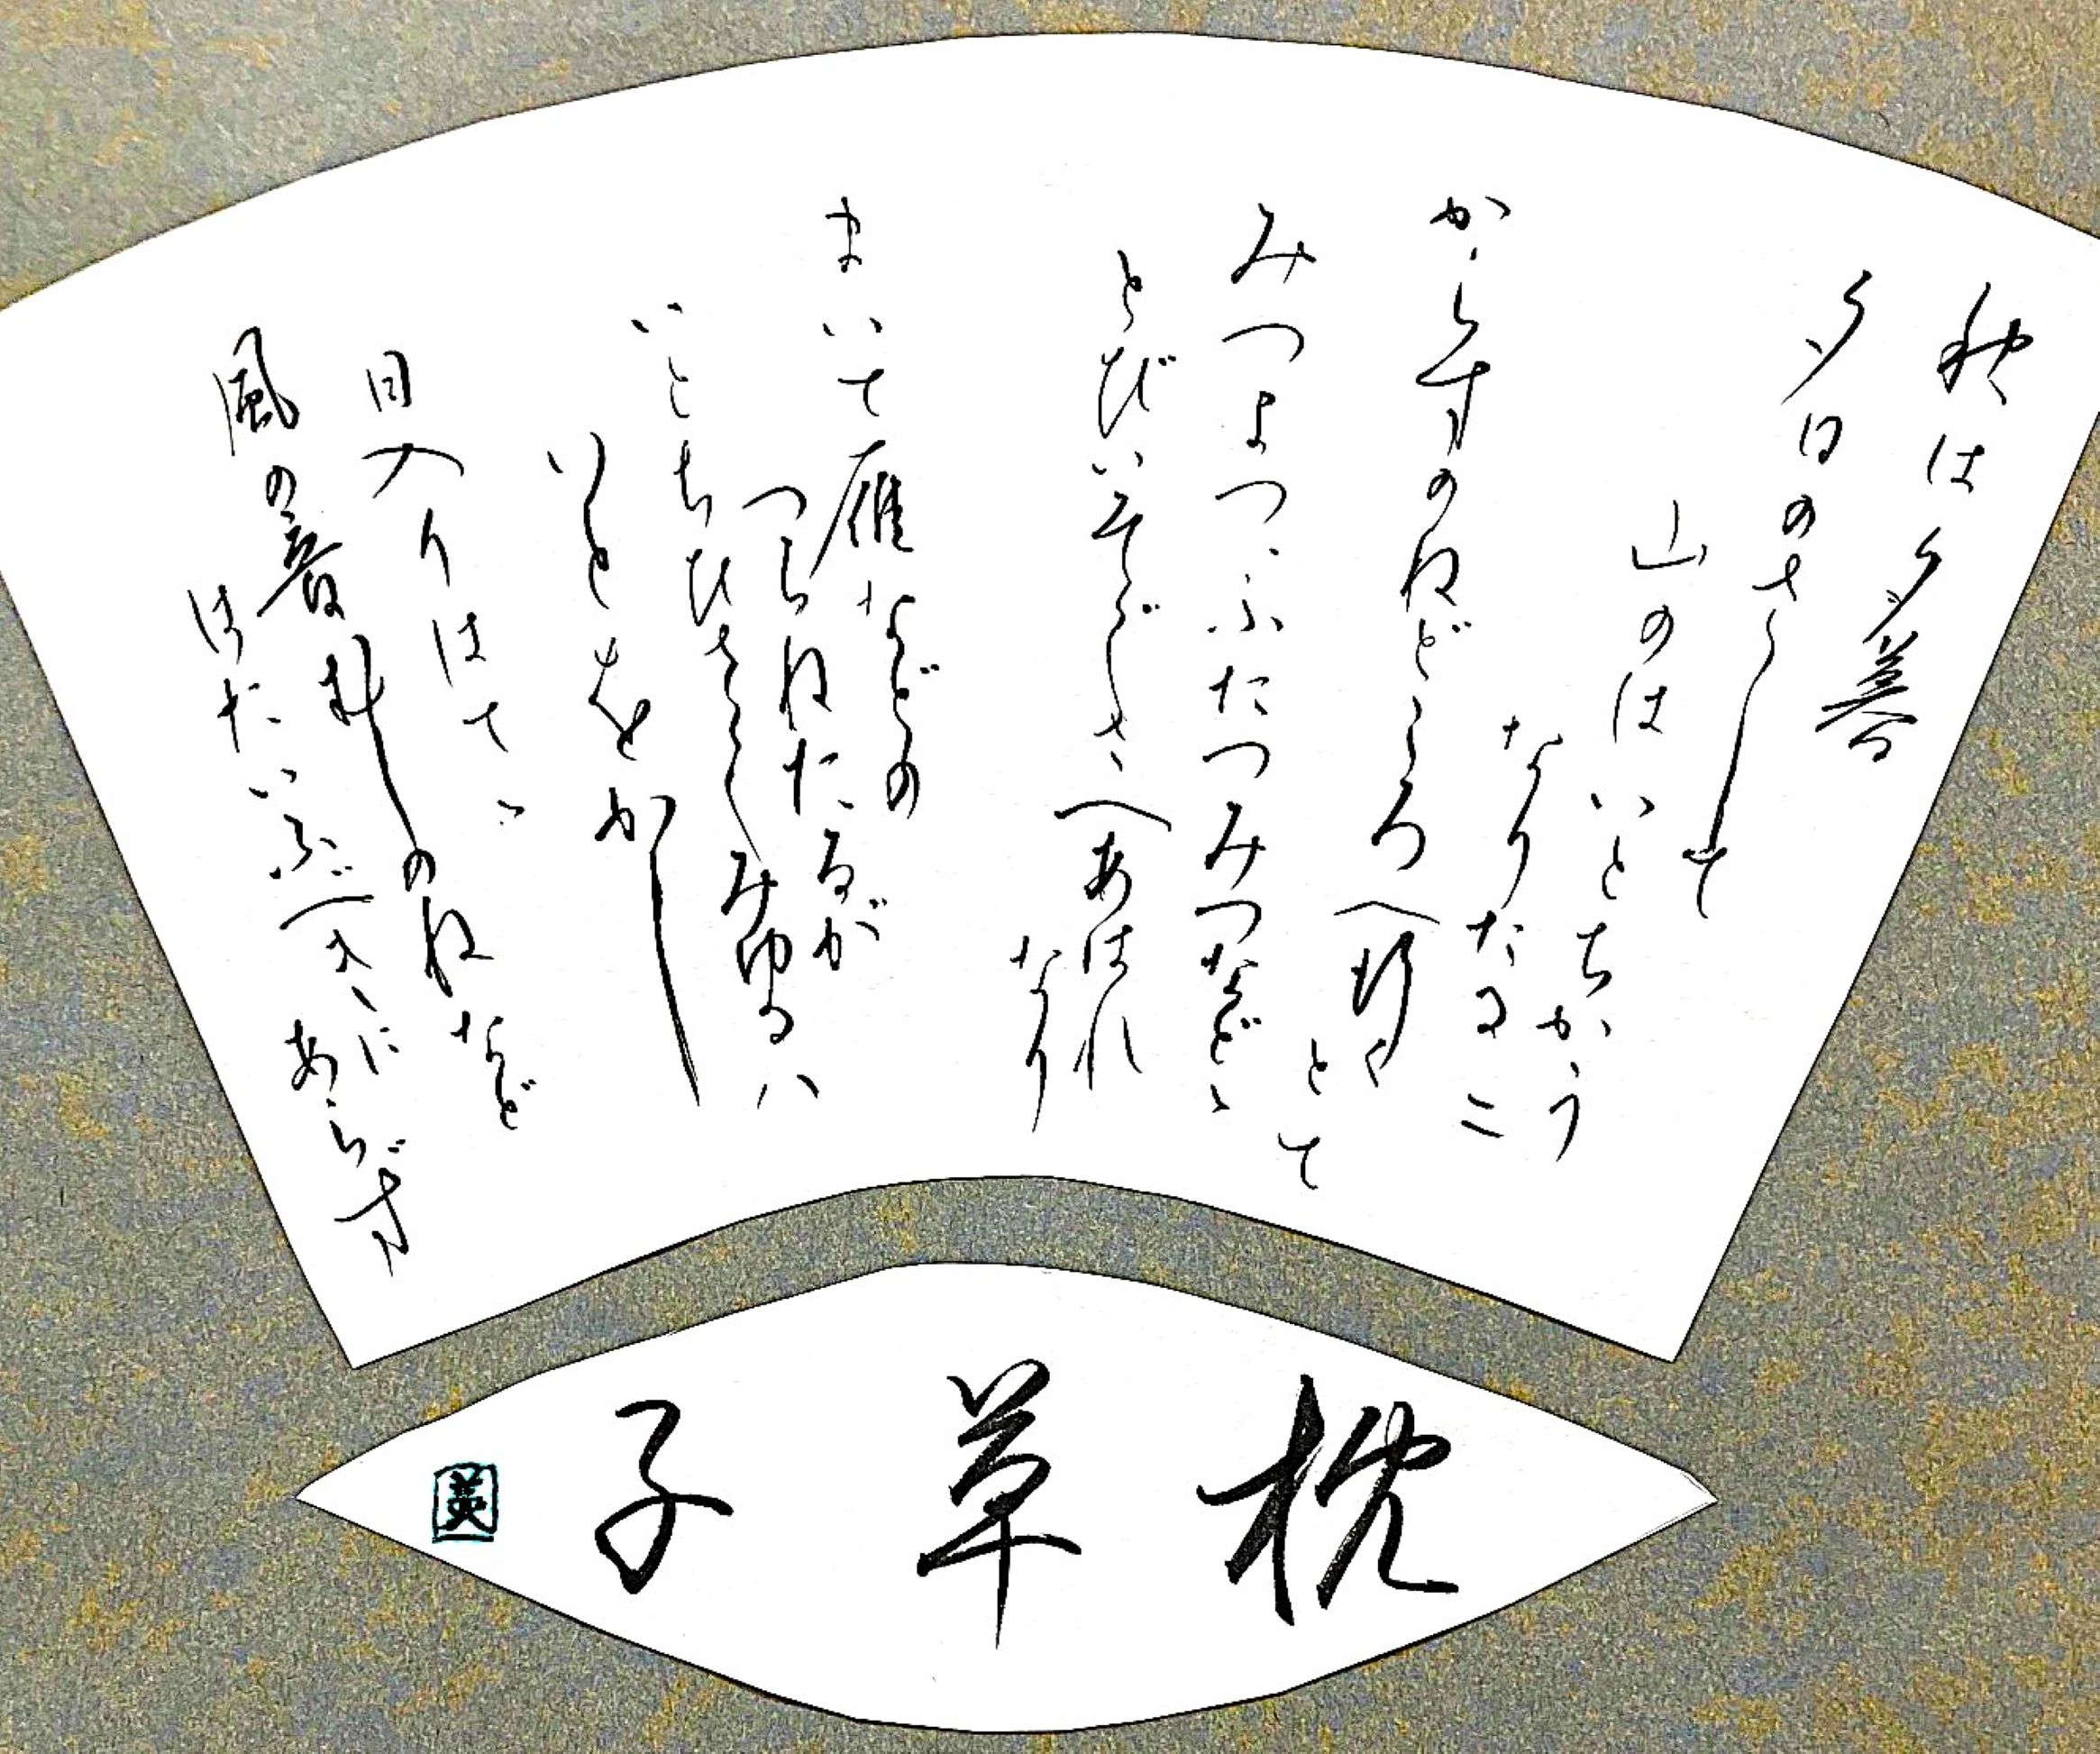 秋は夕暮
夕日のさして
山のはいとちかう
なりたるニ
からすのねどころへ行く
とて
みつよつ、ふたつみつなど、
とびいそぐさへあはれ
なり
まいて雁などの
つらねたるが
いとちひさくみゆるハ
いとをかし
日入りはてゝ
風の音むしのねなど
はたいふべきに
あらず
枕草子
英